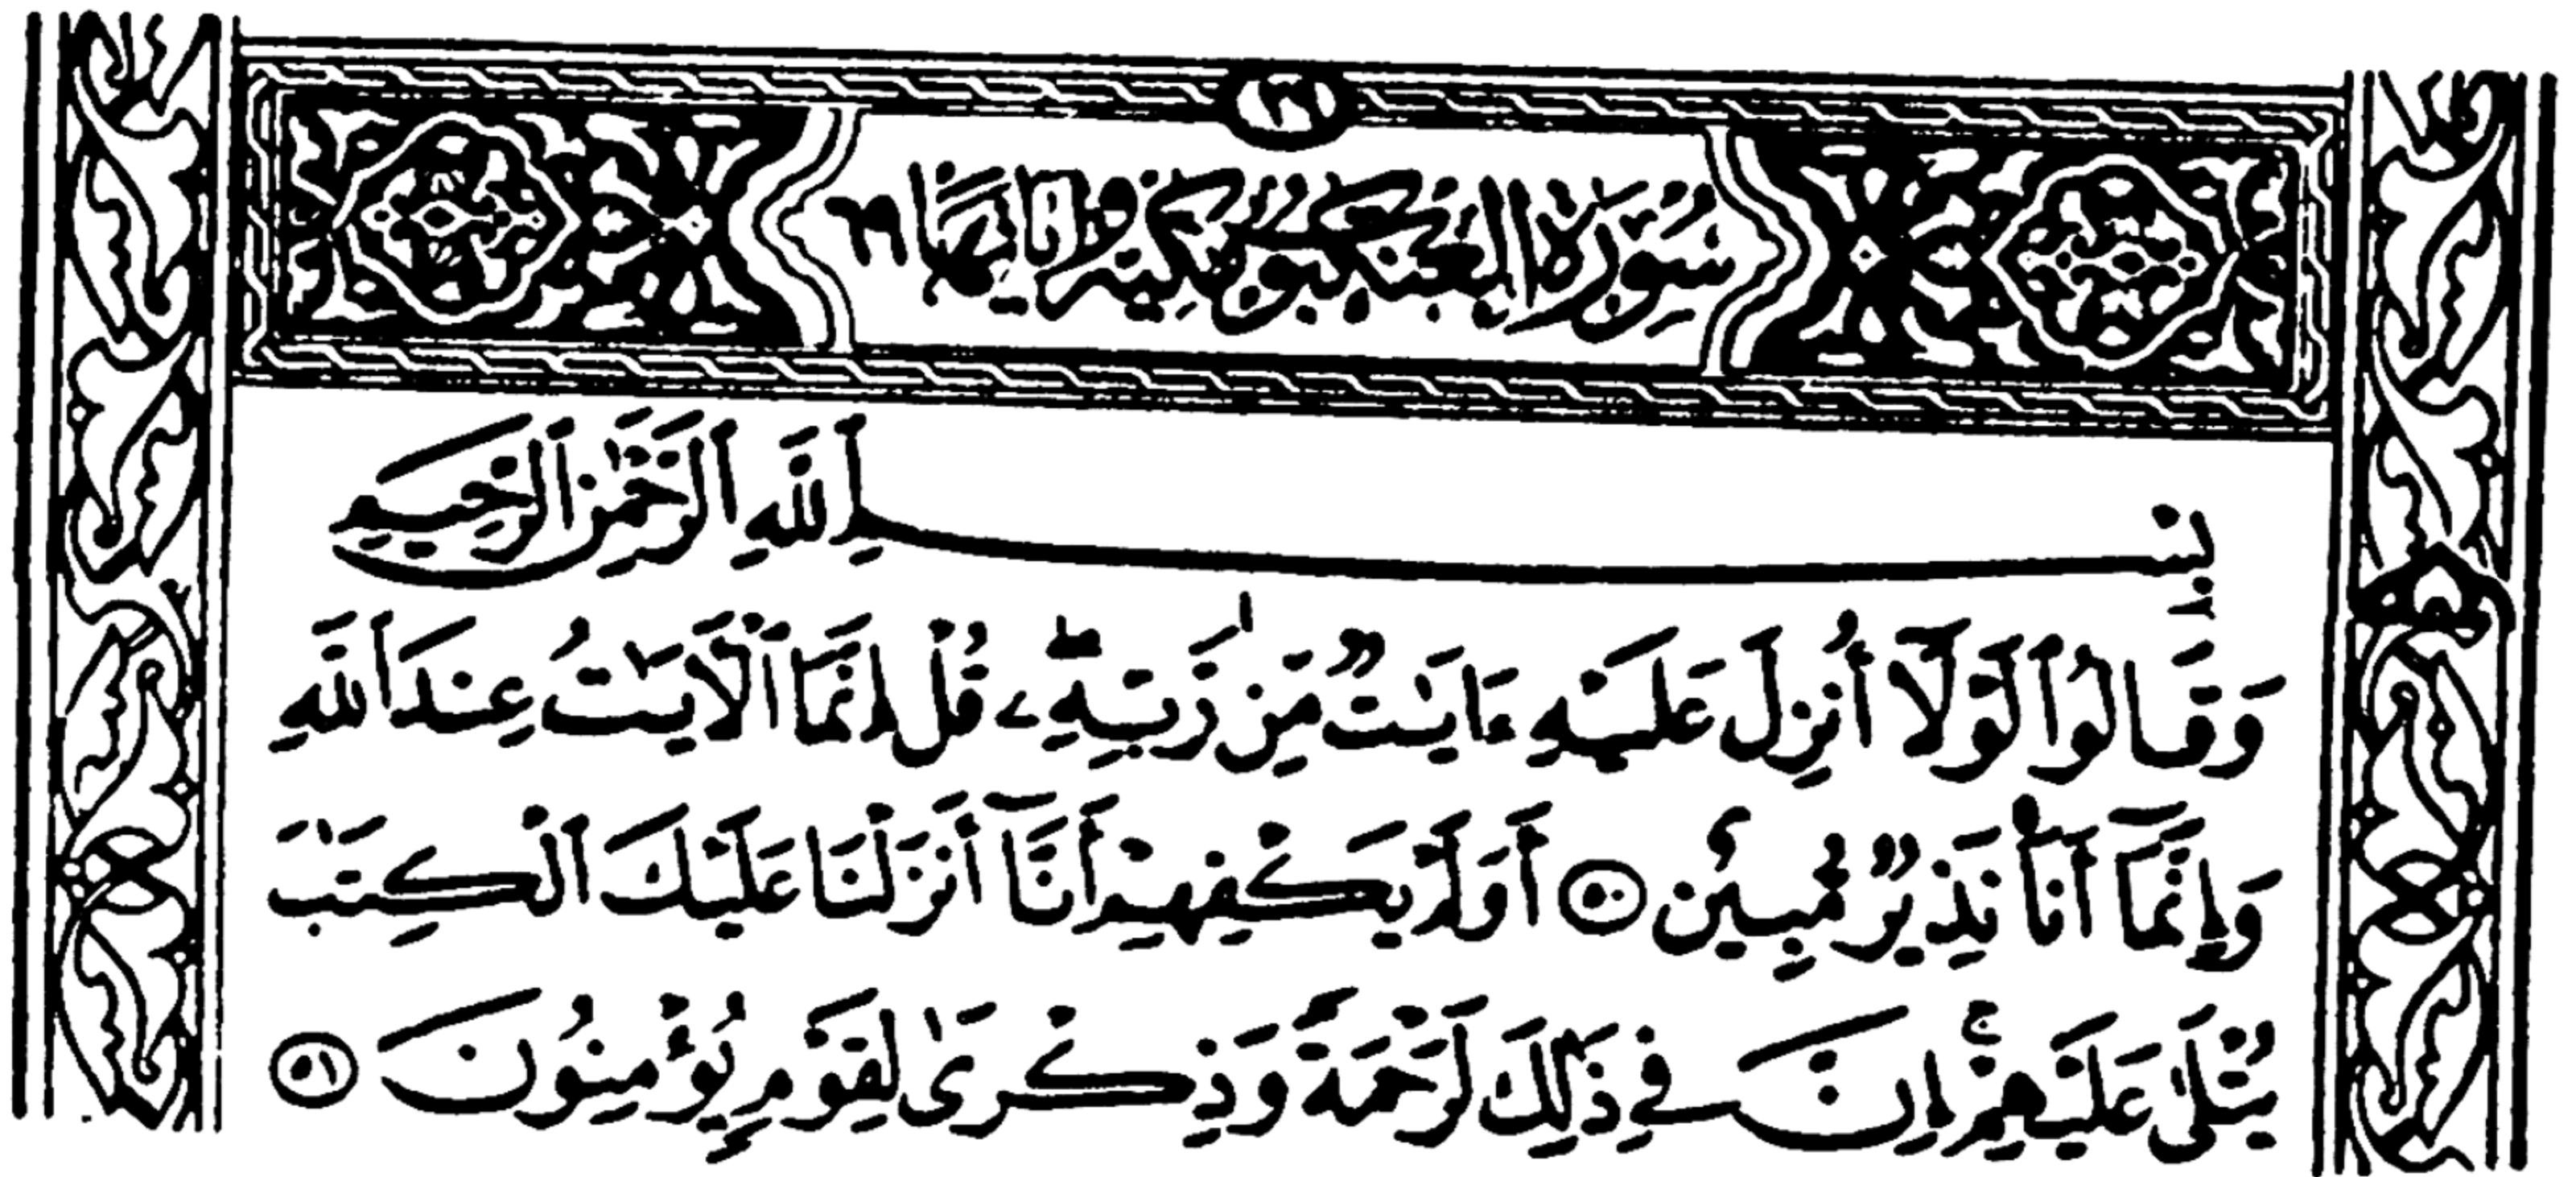 سُورَةُ العَنكَبُوت مَكيَّة وَآيَاتهَا ٦٩
بِسْمِ ٱللَّهِ ٱلرَّحْمَٰنِ ٱلرَّحِيمِ
وَقَالُوا۟ لَوْلَآ أُنزِلَ عَلَيْهِ ءَايَٰتٌ مِّن رَّبِّهِۦ ۖ قُلْ إِنَّمَا ٱلْأَيَٰتُ عِندَ ٱللَّهِ
وَإِنَّمَآ أَنَا۠ نَذِيرٌ مُّبِينٌ ٥٠ أَوَلَمْ يَكْفِهِمْ أَنَّآ أَنزَلْنَا عَلَيْكَ ٱلْكِتَٰبَ
يُتْلَىٰ عَلَيْهِمْ ۚ إِنَّ فِى ذَٰلِكَ لَرَحْمَةً وَذِكْرَىٰ لِقَوْمٍ يُؤْمِنُونَ ٥١